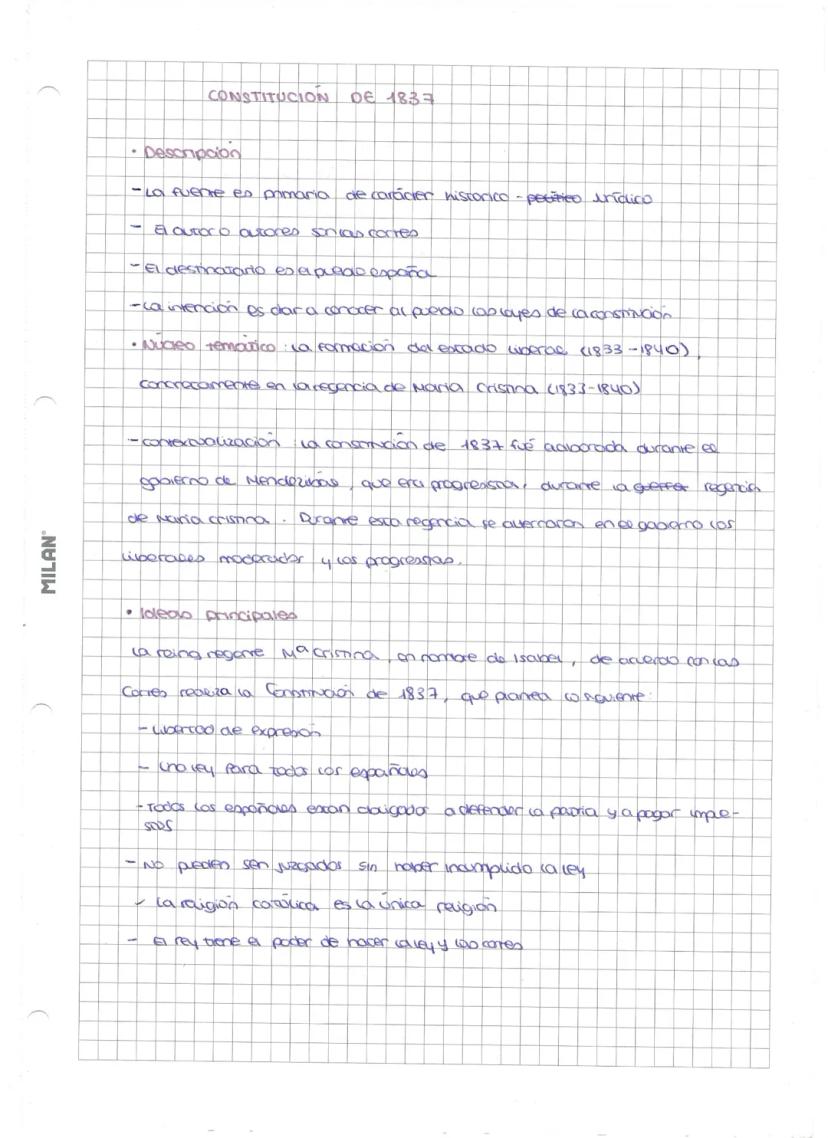 CONSTITUCIÓN DE 1837
• Descripción
- La fuente es primaria de carácter historico - político jurídico
- El autor o autores son las cortes
- El destinatario es el pueblo españa
- La intención es dar a conocer al pueblo las leyes de la constitución
• Núcleo temático: La formación del estado liberal (1833-1840),
concretamente en la regencia de Maria Cristina (1833-1840)
- contextualización: La constitución de 1837 fué elaborada durante el
gobierno de Mendizábal, que era progresista, durante la guerra regencia
de Maria cristina. Durante esta regencia se alternaron en el gobierno los
liberales moderados y los progresistas.
• Ideas principales
La reina regente Mª Cristina, en nombre de Isabel, de acuerdo con las
Cortes realiza la Constitución de 1837, que plantea lo siguiente:
- Libertad de expresión
- Una ley para todos los españoles
- Todos los españoles están obligados a defender la patria y a pagar impe-
stos
- No pueden ser juzgados sin haber incumplido la ley
- La religión católica es la única religión
- El rey tiene el poder de hacer la ley y las cortes
MILAN